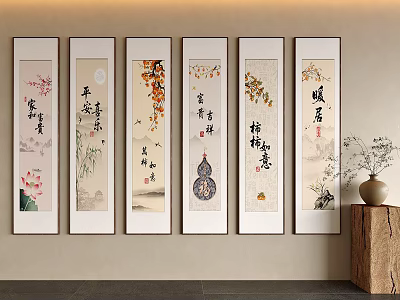 家和
富贵
平安
喜乐
万柿
如意
富贵
吉祥
柿柿
如意
暖居